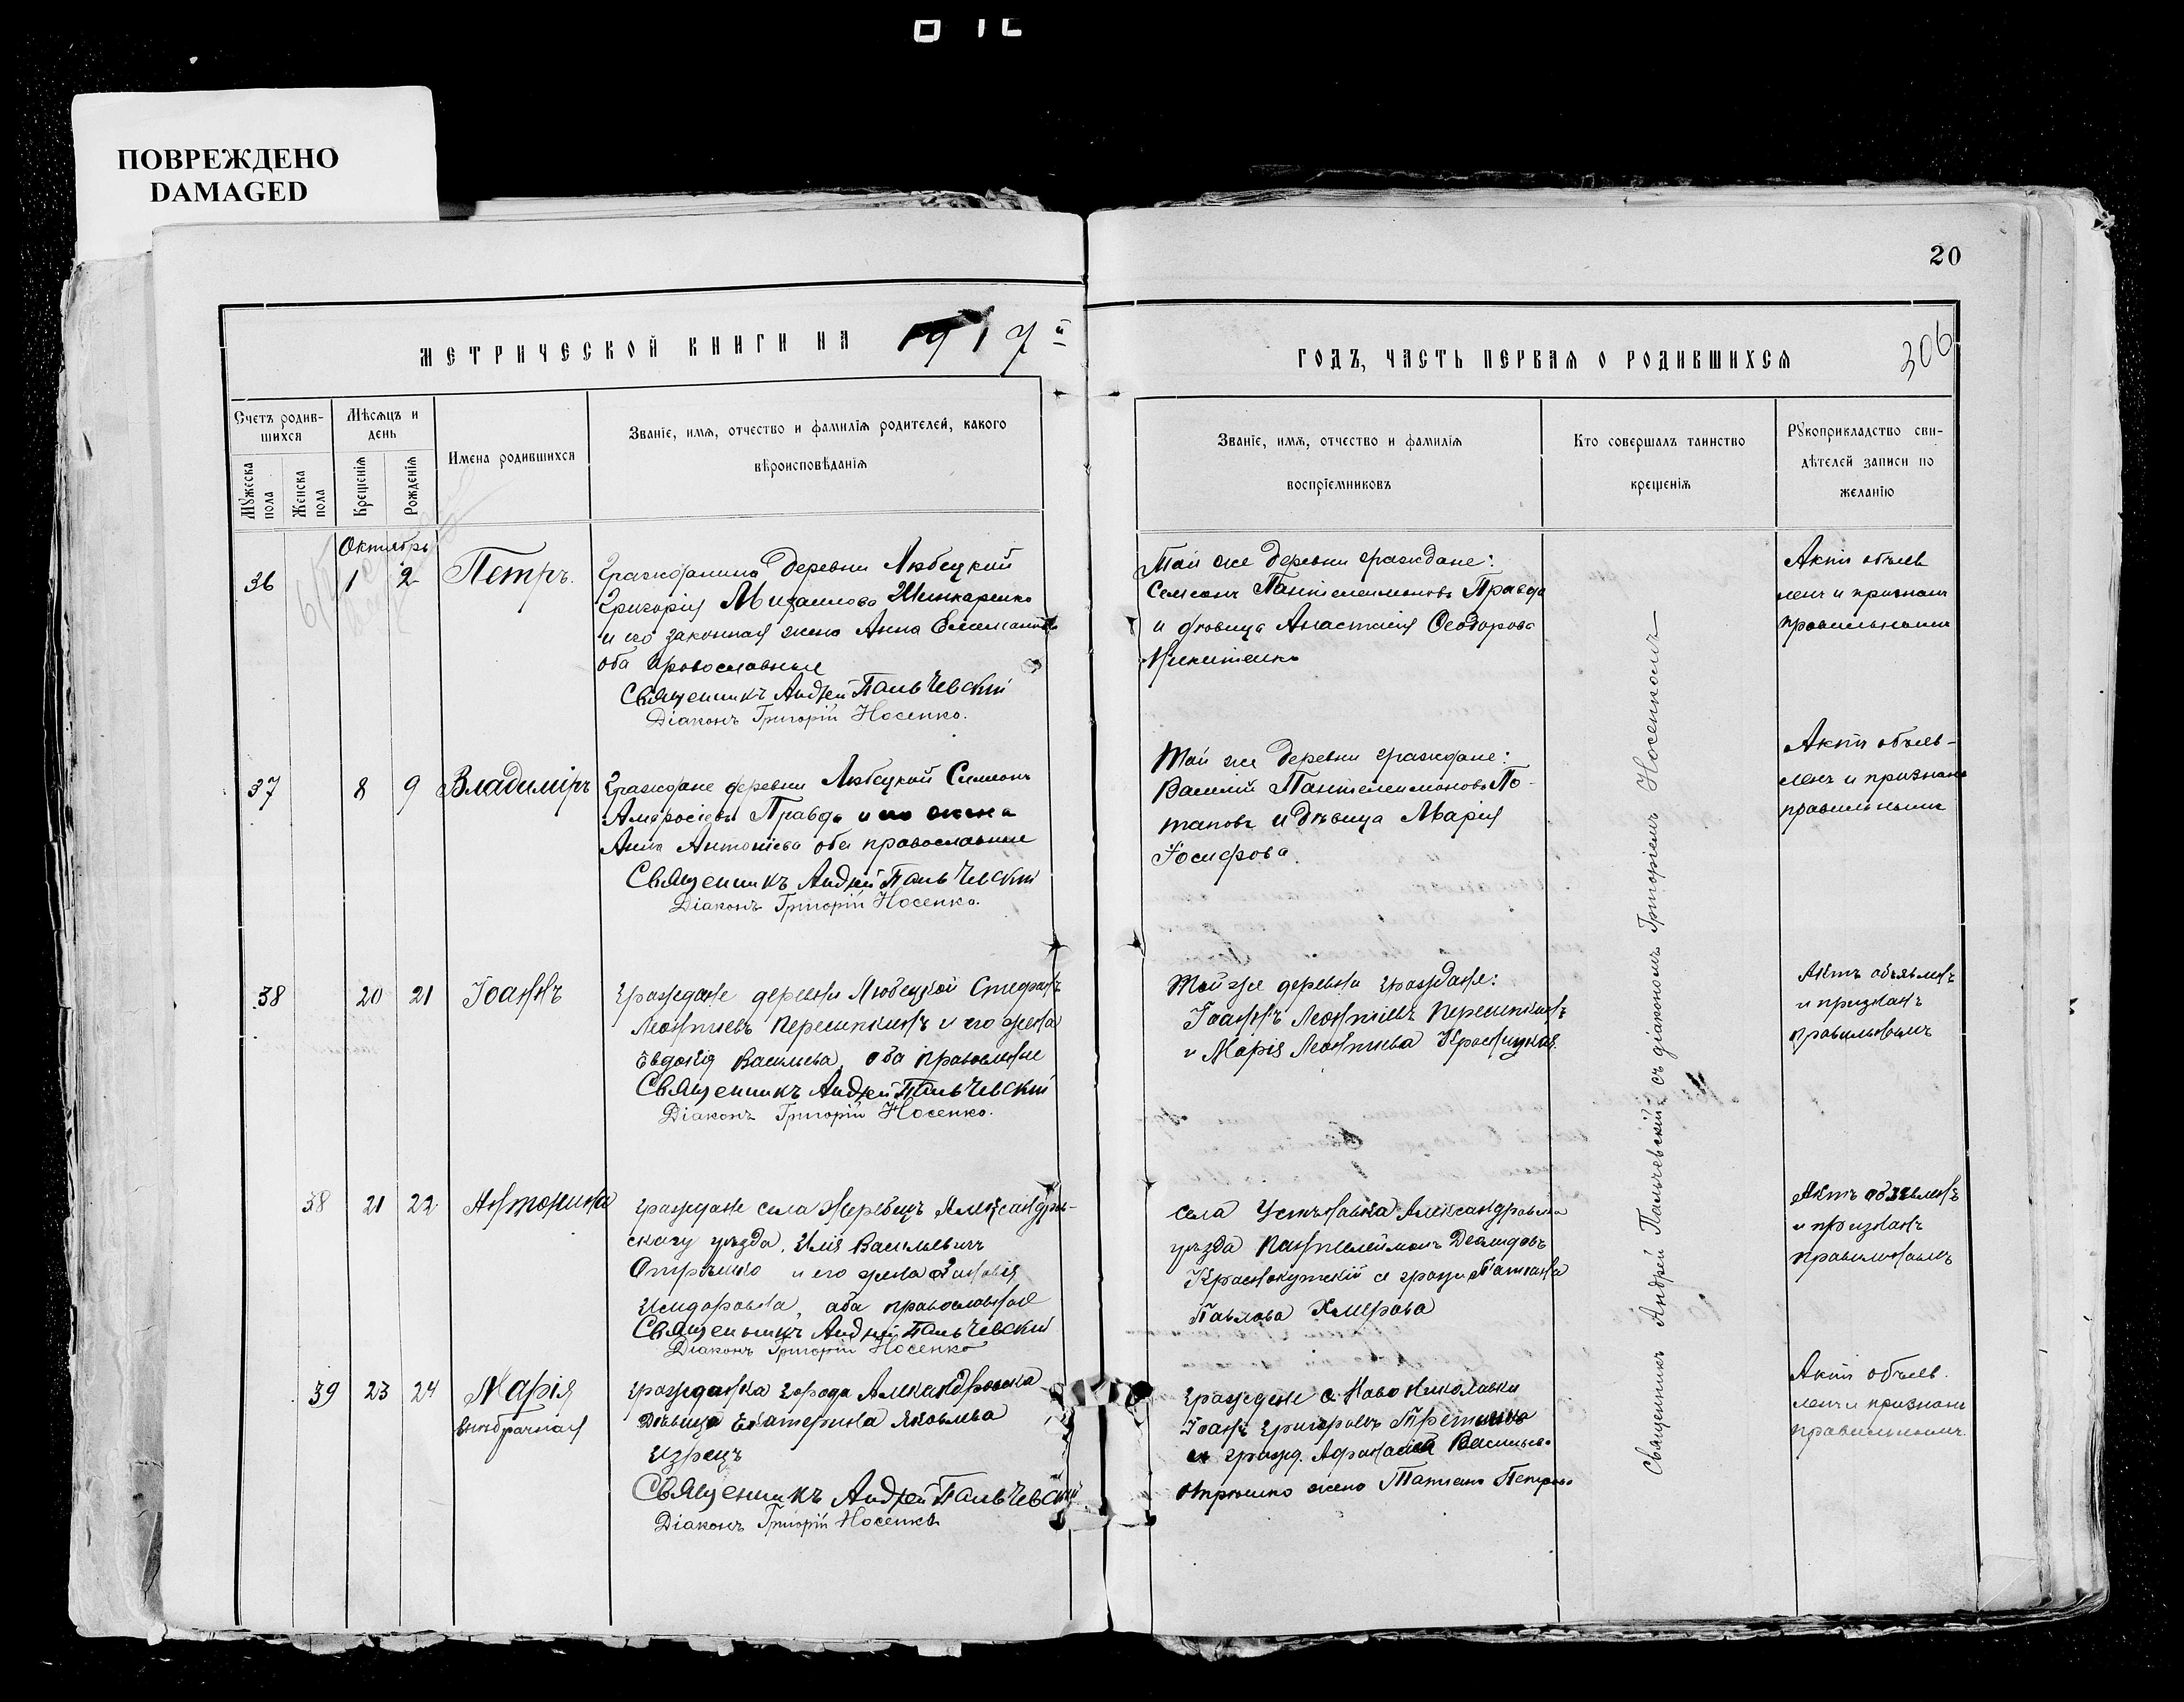 ПОВРЕЖДЕНО
DAMAGED
20
306
МЕТРИЧЕСКОЙ КНИГИ НА 1917й
ГОДЪ, ЧАСТЬ ПЕРВАЯ О РОДИВШИХСЯ
Счетъ родив-
шихся
Мужеска
пола
Женска
пола
Мѣсяцъ и
день
Крещенія
Рожденія
Имена родившихся
Званіе, имя, отчество и фамилія родителей, какого
вѣроисповѣданія
Званіе, имя, отчество и фамилія
воспріемниковъ
Кто совершалъ таинство
крещенія
Рукоприкладство сви-
дѣтелей записи по
желанію
Октябрь
36 1 2 Петръ.
деревни Любецкой
Григорія Михаилова Шинкаренко
и его законная жена Анна
оба православные
Священникъ Андрей Пальчевскій
Діаконъ Григорій Носенко.
Той же деревни граждане:
Семеонъ Пантелеимоновъ Правда
и дѣвица Анастасія Ѳеодорова
Никитенко
Актъ объяв
ленъ и признанъ
правильнымъ
37 8 9 Владиміръ
Граждане деревни Любецкой Симеонъ
Амвросіевъ Правда и его жена
Анна Антоніева оба православные
Священникъ Андрей Пальчевскій
Діаконъ Григорій Носенко.
Той же деревни граждане:
Василій Пантелеимоновъ По-
таповъ и дѣвица Марія
Іосифова.
Актъ объяв-
ленъ и признанъ
правильнымъ
38 20 21 Іоаннъ
Граждане деревни Любецкой Стефанъ
Леонтіевъ и его жена
Евдокія Васильева, оба православные
Священникъ Андрей Пальчевскій
Діаконъ Григорій Носенко.
Той же деревни граждане:
Іоаннъ Леонтіевъ
и Марія Леонтіева
Актъ объявленъ
и признанъ
правильнымъ
38 21 22 Антонина
Граждане села Жеребецъ Александров-
скаго уѣзда, Илія Васильевичъ
и его жена Зиновія
Исидоровна, оба православные
Священникъ Андрей Пальчевскій
Діаконъ Григорій Носенко
села Александровска
уѣзда Пантелеймонъ Демидовъ
Краснокутскій и Татіана
Павлова
Актъ объявленъ
и признанъ
правильнымъ
39 23 24 Марія
внѣбрачная
Гражданка города Александровска
дѣвица Екатерина Яковлева
Изрецъ
Священникъ Андрей Пальчевскій
Діаконъ Григорій Носенко
Граждане с. Ново Николаевки
Іоаннъ Григорьевъ
и гражд. Афанасія Васильева
жена Татіана Петрова
Актъ объяв.
ленъ и признанъ
правильнымъ
Священникъ Андрей Пальчевскій съ діакономъ Григоріемъ Носенкомъ